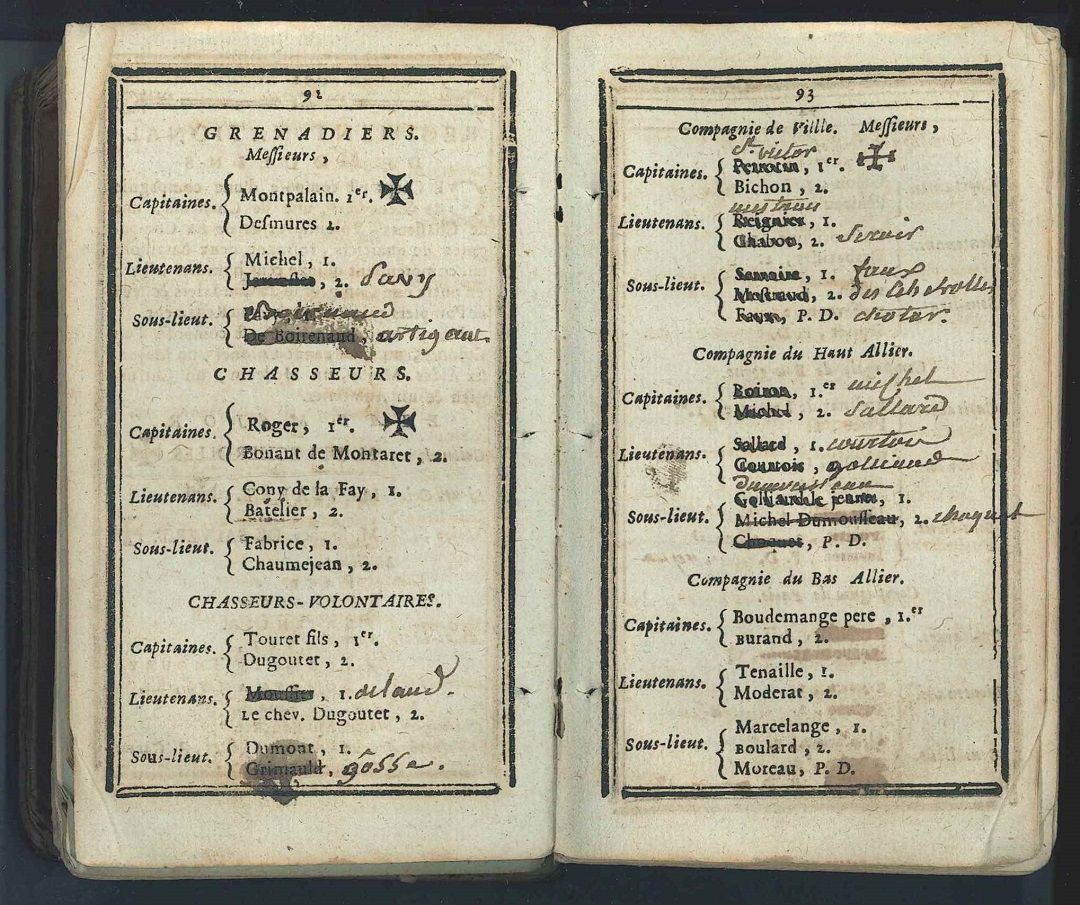 92
GRENADIERS.
Meſſieurs,
Capitaines. Montpalain. 1er.
Deſmures 2.
Lieutenans. Michel, 1.
, 2. Savy
Sous-lieut.
De Boirenaud, artigaut
CHASSEURS.
Capitaines. Roger, 1er.
Bonant de Montaret, 2.
Lieutenans. Cony de la Fay, 1.
Batelier, 2.
Sous-lieut. Fabrice, 1.
Chaumejean, 2.
CHASSEURS-VOLONTAIRES.
Capitaines. Touret fils, 1er.
Dugoutet, 2.
Lieutenans. Mouſſier, 1. delaud.
Le chev. Dugoutet, 2.
Sous-lieut. Dumont, 1.
Grimauld, gôsse.
93
Compagnie de Villle. Meſſieurs,
St. victor
Capitaines. 1er.
Bichon, 2.
Lieutenans. Reignier, 1.
Chabou, 2.
Sous-lieut. , 1. faux
, 2.
Faux, P. D.
Compagnie du Haut Allier.
Capitaines. Boiron, 1.er michel
Michel, 2. Sallard
Lieutenans. Sallard, 1. courtois
Courtois, golliaud
Sous-lieut. jeune, 1.
Michel Dumouſſeau, 2. choquet
Choquet, P. D.
Compagnie du Bas Allier.
Capitaines. Boudemange pere, 1.er
Burand, 2.
Lieutenans. Tenaille, 1.
Moderat, 2.
Sous-lieut. Marcelange, 1.
Boulard, 2.
Moreau, P. D.